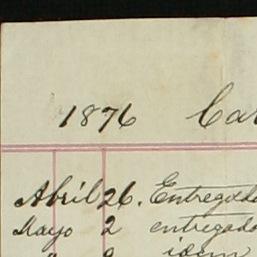 1876
Abril 26. Entregado
Mayo 2 entregado
idem